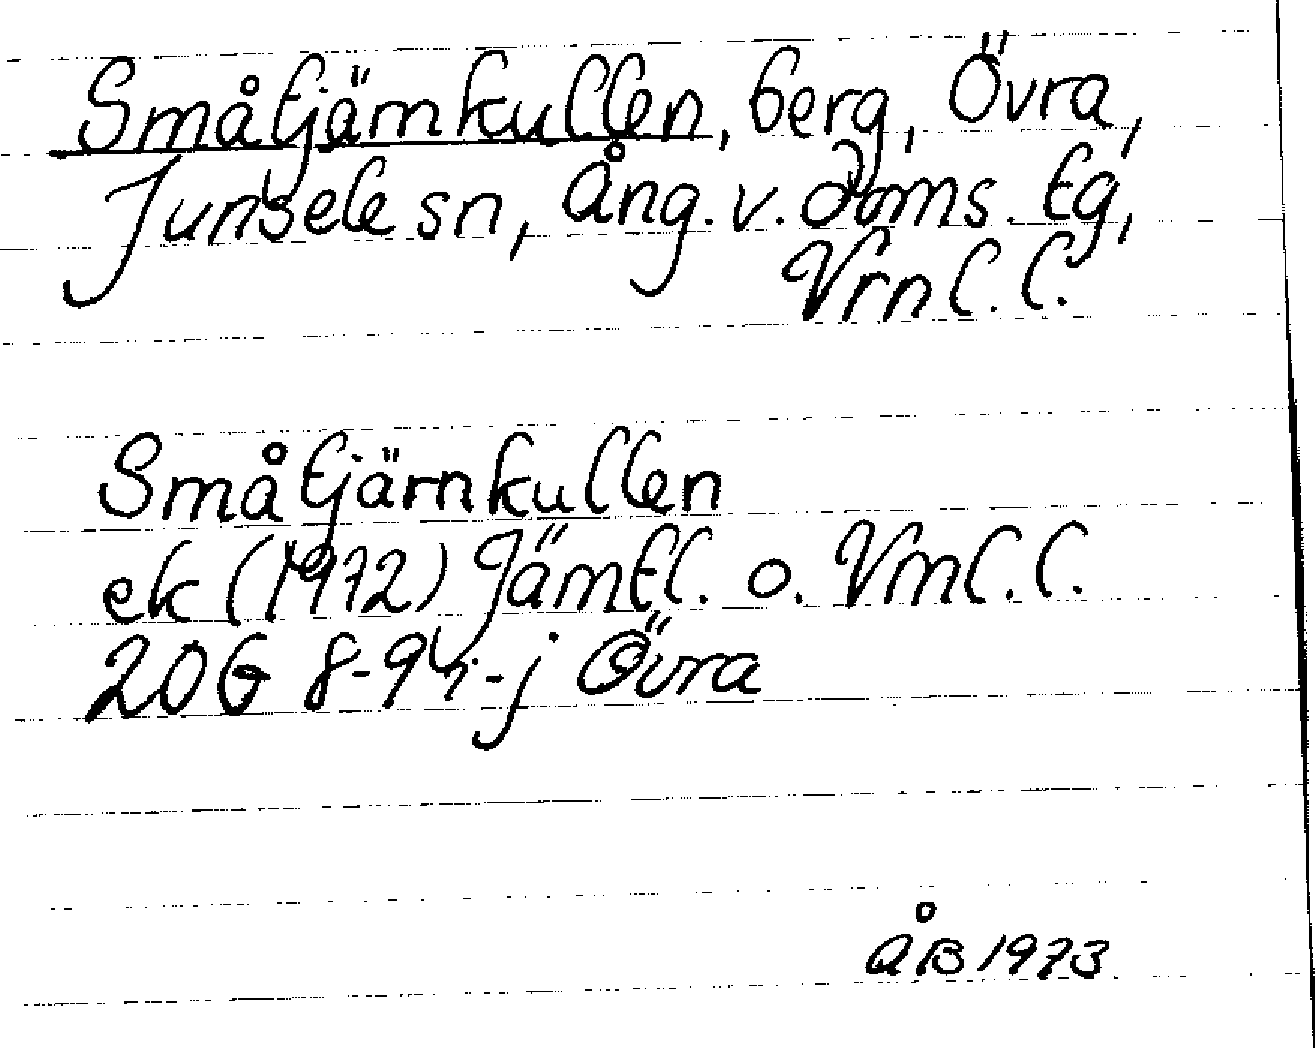 Småtjärnkullen, berg, Övra,
Junsele sn, Ång. v. doms. tg,
Vrnl. l.
Småtjärnkullen
ek (1972) Jämtl. o. Vrnl. l.
20G 8-9 h-j Övra
ÅB 1973